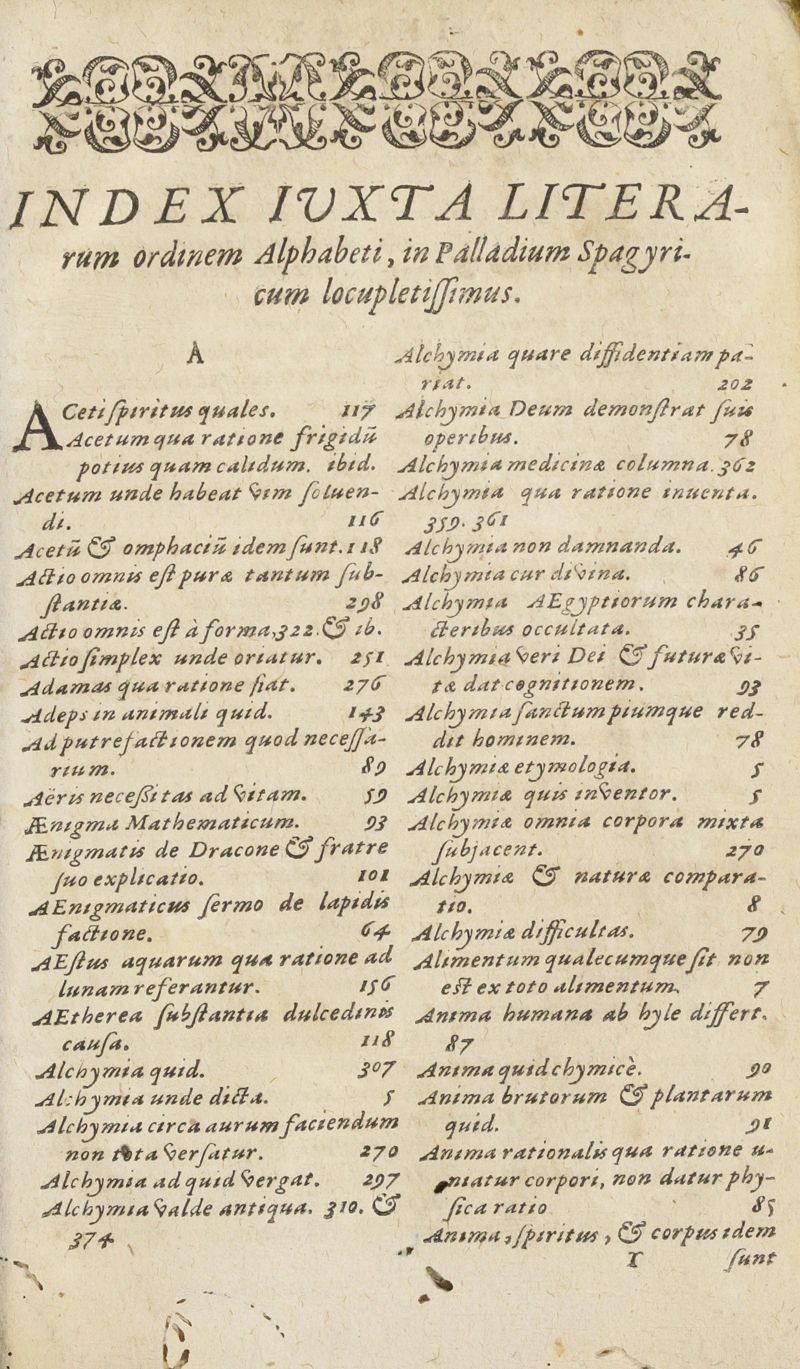 INDEX IVXTA LITERA-
rum ordinem Alphabeti, in Palladium Spagyri-
cum locupletißimus.
A
ACeti ſpiritus quales. 117
Acetum qua ratione frigidũ
potius quam calidum. ibid.
Acetum unde habeat vim ſoluen-
di. 116
Acetũ & omphaciũ idem ſunt. 118
Actio omnis eſt puræ tantum ſub-
ſtantiæ. 298
Actio omnis eſt à forma, 322. & ib.
Actio ſimplex unde oriatur. 251
Adamas qua ratione fiat. 276
Adeps in animali quid. 143
Ad putrefactionem quod neceſſa-
rium. 89
Aëris neceßitas ad vitam. 59
Ænigma Mathematicum. 93
Ænigmatis de Dracone & fratre
ſuo explicatio. 101
AEnigmaticus ſermo de lapidis
factione. 64
AEſtus aquarum qua ratione ad
lunam referantur. 156
AEtherea ſubſtantia dulcedinis
cauſa. 118
Alchymia quid. 307
Alchymia unde dicta. 5
Alchymia circa aurum faciendum
non tota verſatur. 270
Alchymia ad quid vergat. 297
Alchymia valde antiqua. 310. &
374
Alchymia quare diffidentiam pa-
riat. 202
Alchymia Deum demonſtrat ſuis
operibus. 78
Alchymia medicinæ columna. 362
Alchymia qua ratione inuenta.
359. 361
Alchymia non damnanda. 46
Alchymia cur divina. 86
Alchymia AEgyptiorum chara-
cteribus occultata. 35
Alchymia veri Dei & futuræ vi-
tæ dat cognitionem. 93
Alchymia ſanctum piumque red-
dit hominem. 78
Alchymiæ etymologia. 5
Alchymiæ quis inventor. 5
Alchymiæ omnia corpora mixta
ſubjacent. 270
Alchymiæ & naturæ compara-
tio. 8
Alchymiæ difficultas. 79
Alimentum qualecumque ſit non
eſt ex toto alimentum. 7
Anima humana ab hyle differt.
87
Anima quid chymicè. 90
Anima brutorum & plantarum
quid. 91
Anima rationalis qua ratione u-
niatur corpori, non datur phy-
ſica ratio 85
Anima, ſpiritus, & corpus idem
T ſunt